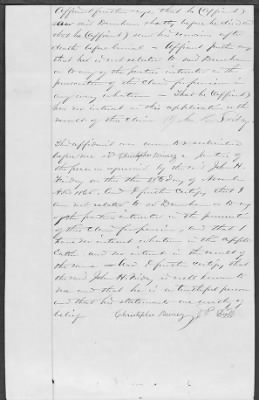 Affiant further says that he (Affiant)
saw said Dernham shortly before he died and
that he (Affiant) saw his remains after
death before burial — Affiant further says
that he is not related to said Dernham
or to any of the parties interested in the
prosecution of this claim for pension in
any way whatever — That he (Affiant)
has no interest in this application or the
result of this claim John H.
This affidavit was sworn to & subscribed
before me Christopher a Justice of
the peace as appears by the said John H.
on this the day of
A.D. 186 and I further certify that I
am not related to said Dernham or to any
of the parties interested in the prosecution
of this claim for pension, and that I
have no interest whatever in this appli-
cation and no interest in the result of
the same and I further certify that
the said John H. is well known to
me and that he is a truthful person
and that his statements are worthy of
belief Christopher J.P.